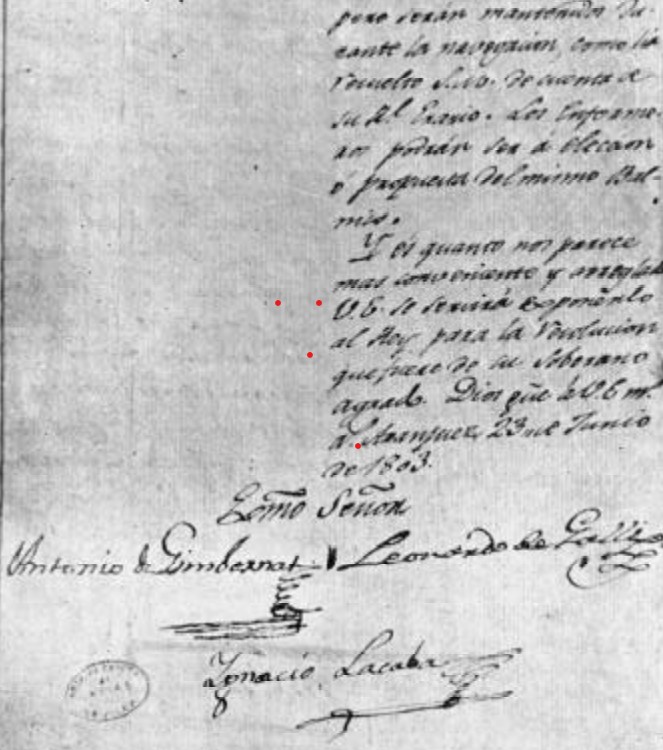 pero serán mantenidos du-
rante la navegacion, como lo
resuelto S.M. de cuenta de
su Rl. Erario. Los Enferme-
ros podrán ser a eleccion
ó propuesta del mismo Bal-
mis.
Y es quanto nos parece
mas conveniente y arreglado
V.E. se servirá exponerlo
al Rey para la resolucion
que fuere de su soberano
agrado. Dios gũe à V.E. ms.
as. Aranjuez 23 de Junio
de 1803.
Exmõ Señor
Antonio de Gimbernat Leonardo de Galli
Ignacio Lacaba